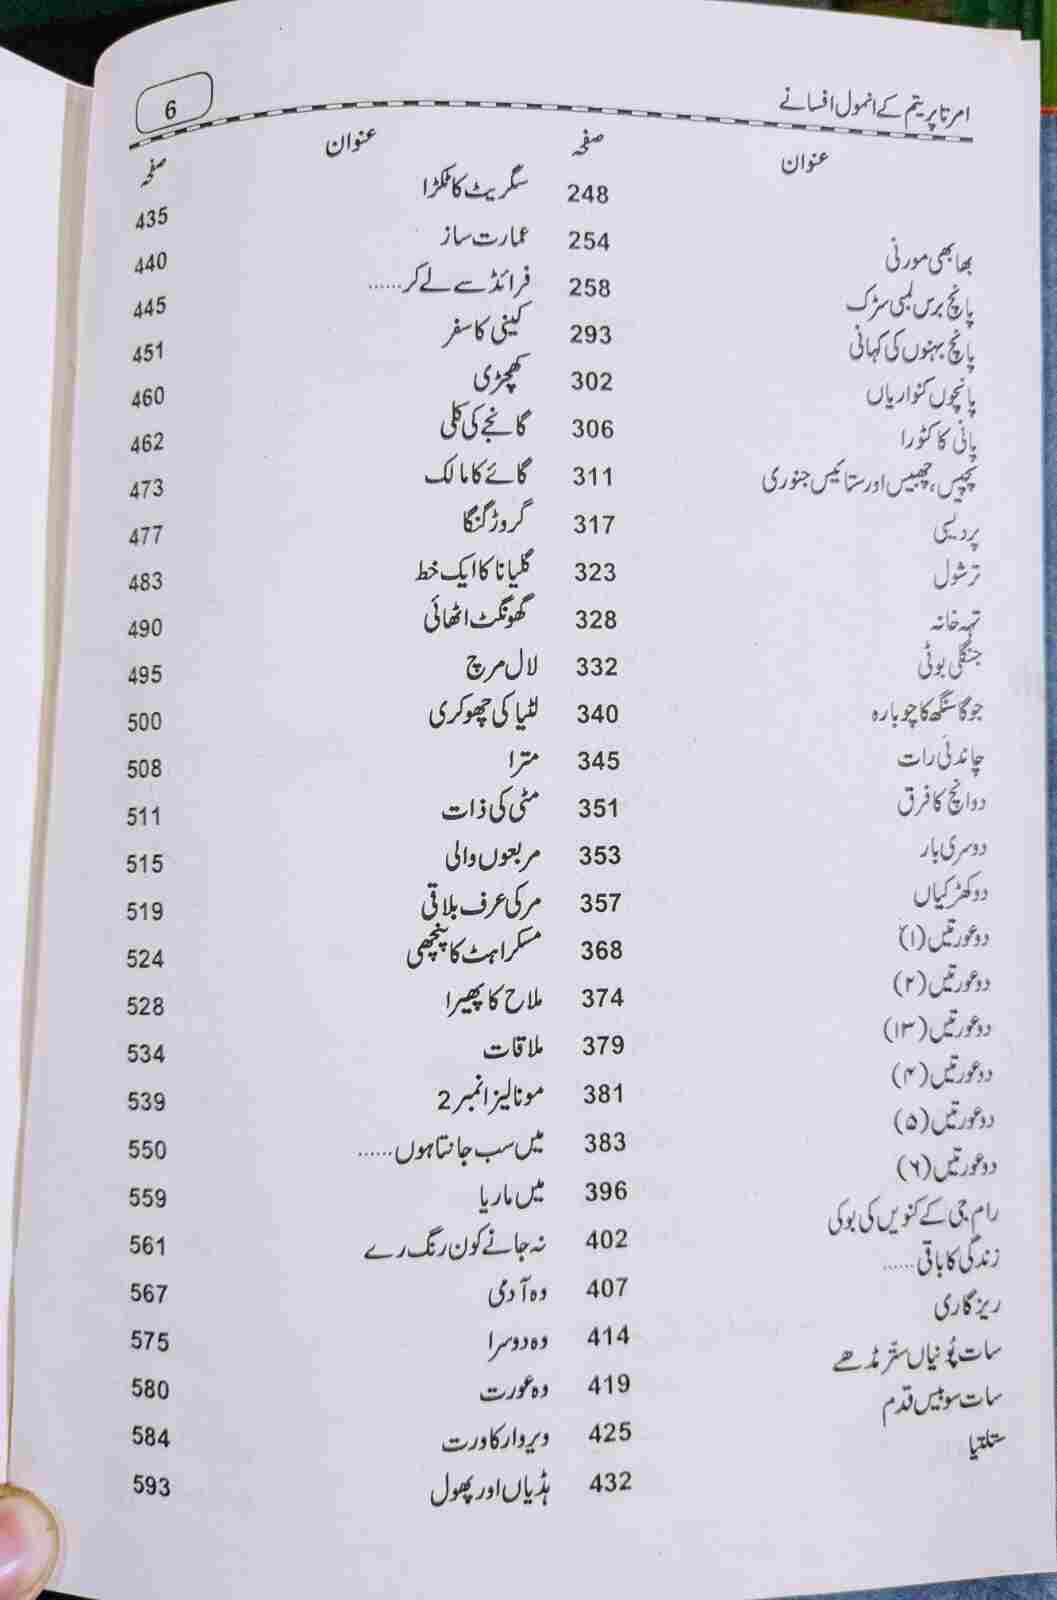 امرتا پریتم کے انمول افسانے 6
عنوان صفحہ
بھابھی مورنی 248
پانچ برس لمبی سڑک 254
پانچ بہنوں کی کہانی 258
پانچوں کنواریاں 293
پانی کا کٹورا 302
پچیس، چھبیس اور ستائیس جنوری 306
پردیسی 311
ترشول 317
تہہ خانہ 323
جنگلی بوٹی 328
جوگا سنگھ کا چوبارہ 332
چاندنی رات 340
دو انچ کا فرق 345
دوسری بار 351
دو کھڑکیاں 353
دو عورتیں (۱) 357
دو عورتیں (۲) 368
دو عورتیں (۱۳) 374
دو عورتیں (۴) 379
دو عورتیں (۵) 381
دو عورتیں (۶) 383
رام جی کے کنویں کی بوکی 396
زندگی کا باقی...... 402
ریزگاری 407
سات پُونیاں ستّر مڈھے 414
سات سو بیس قدم 419
ستلتیا 425
432
عنوان صفحہ
سگریٹ کا ٹکڑا 435
عمارت ساز 440
فرائڈ سے لے کر...... 445
کینی کا سفر 451
کھچڑی 460
گانجے کی کلی 462
گائے کا مالک 473
گروڑ گنگا 477
گلیانا کا ایک خط 483
گھونگٹ اٹھائی 490
لال مرچ 495
لٹیا کی چھوکری 500
مترا 508
مٹی کی ذات 511
مربعوں والی 515
مرکی عرف بلاقی 519
مسکراہٹ کا پنچھی 524
ملاح کا پھیرا 528
ملاقات 534
مونالیزا نمبر 2 539
میں سب جانتا ہوں...... 550
میں ماریا 559
نہ جانے کون رنگ رے 561
وہ آدمی 567
وہ دوسرا 575
وہ عورت 580
ویروار کا ورت 584
ہڈیاں اور پھول 593